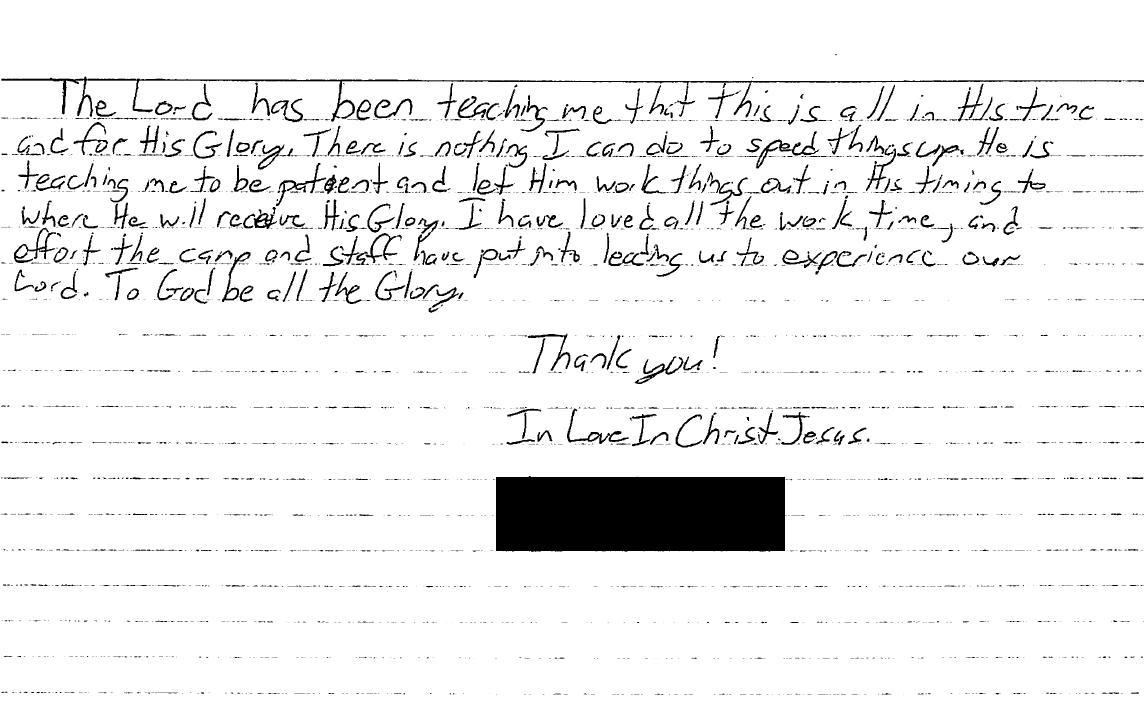 The Lord has been teaching me that this is all in His time
and for His Glory. There is nothing I can do to speed things up. He is
teaching me to be patient and let Him work things out in His timing to
where He will receive His Glory. I have loved all the work, time, and
effort the camp and staff have put into leading us to experience our
Lord. To God be all the Glory.
Thank you!
In Love In Christ Jesus.